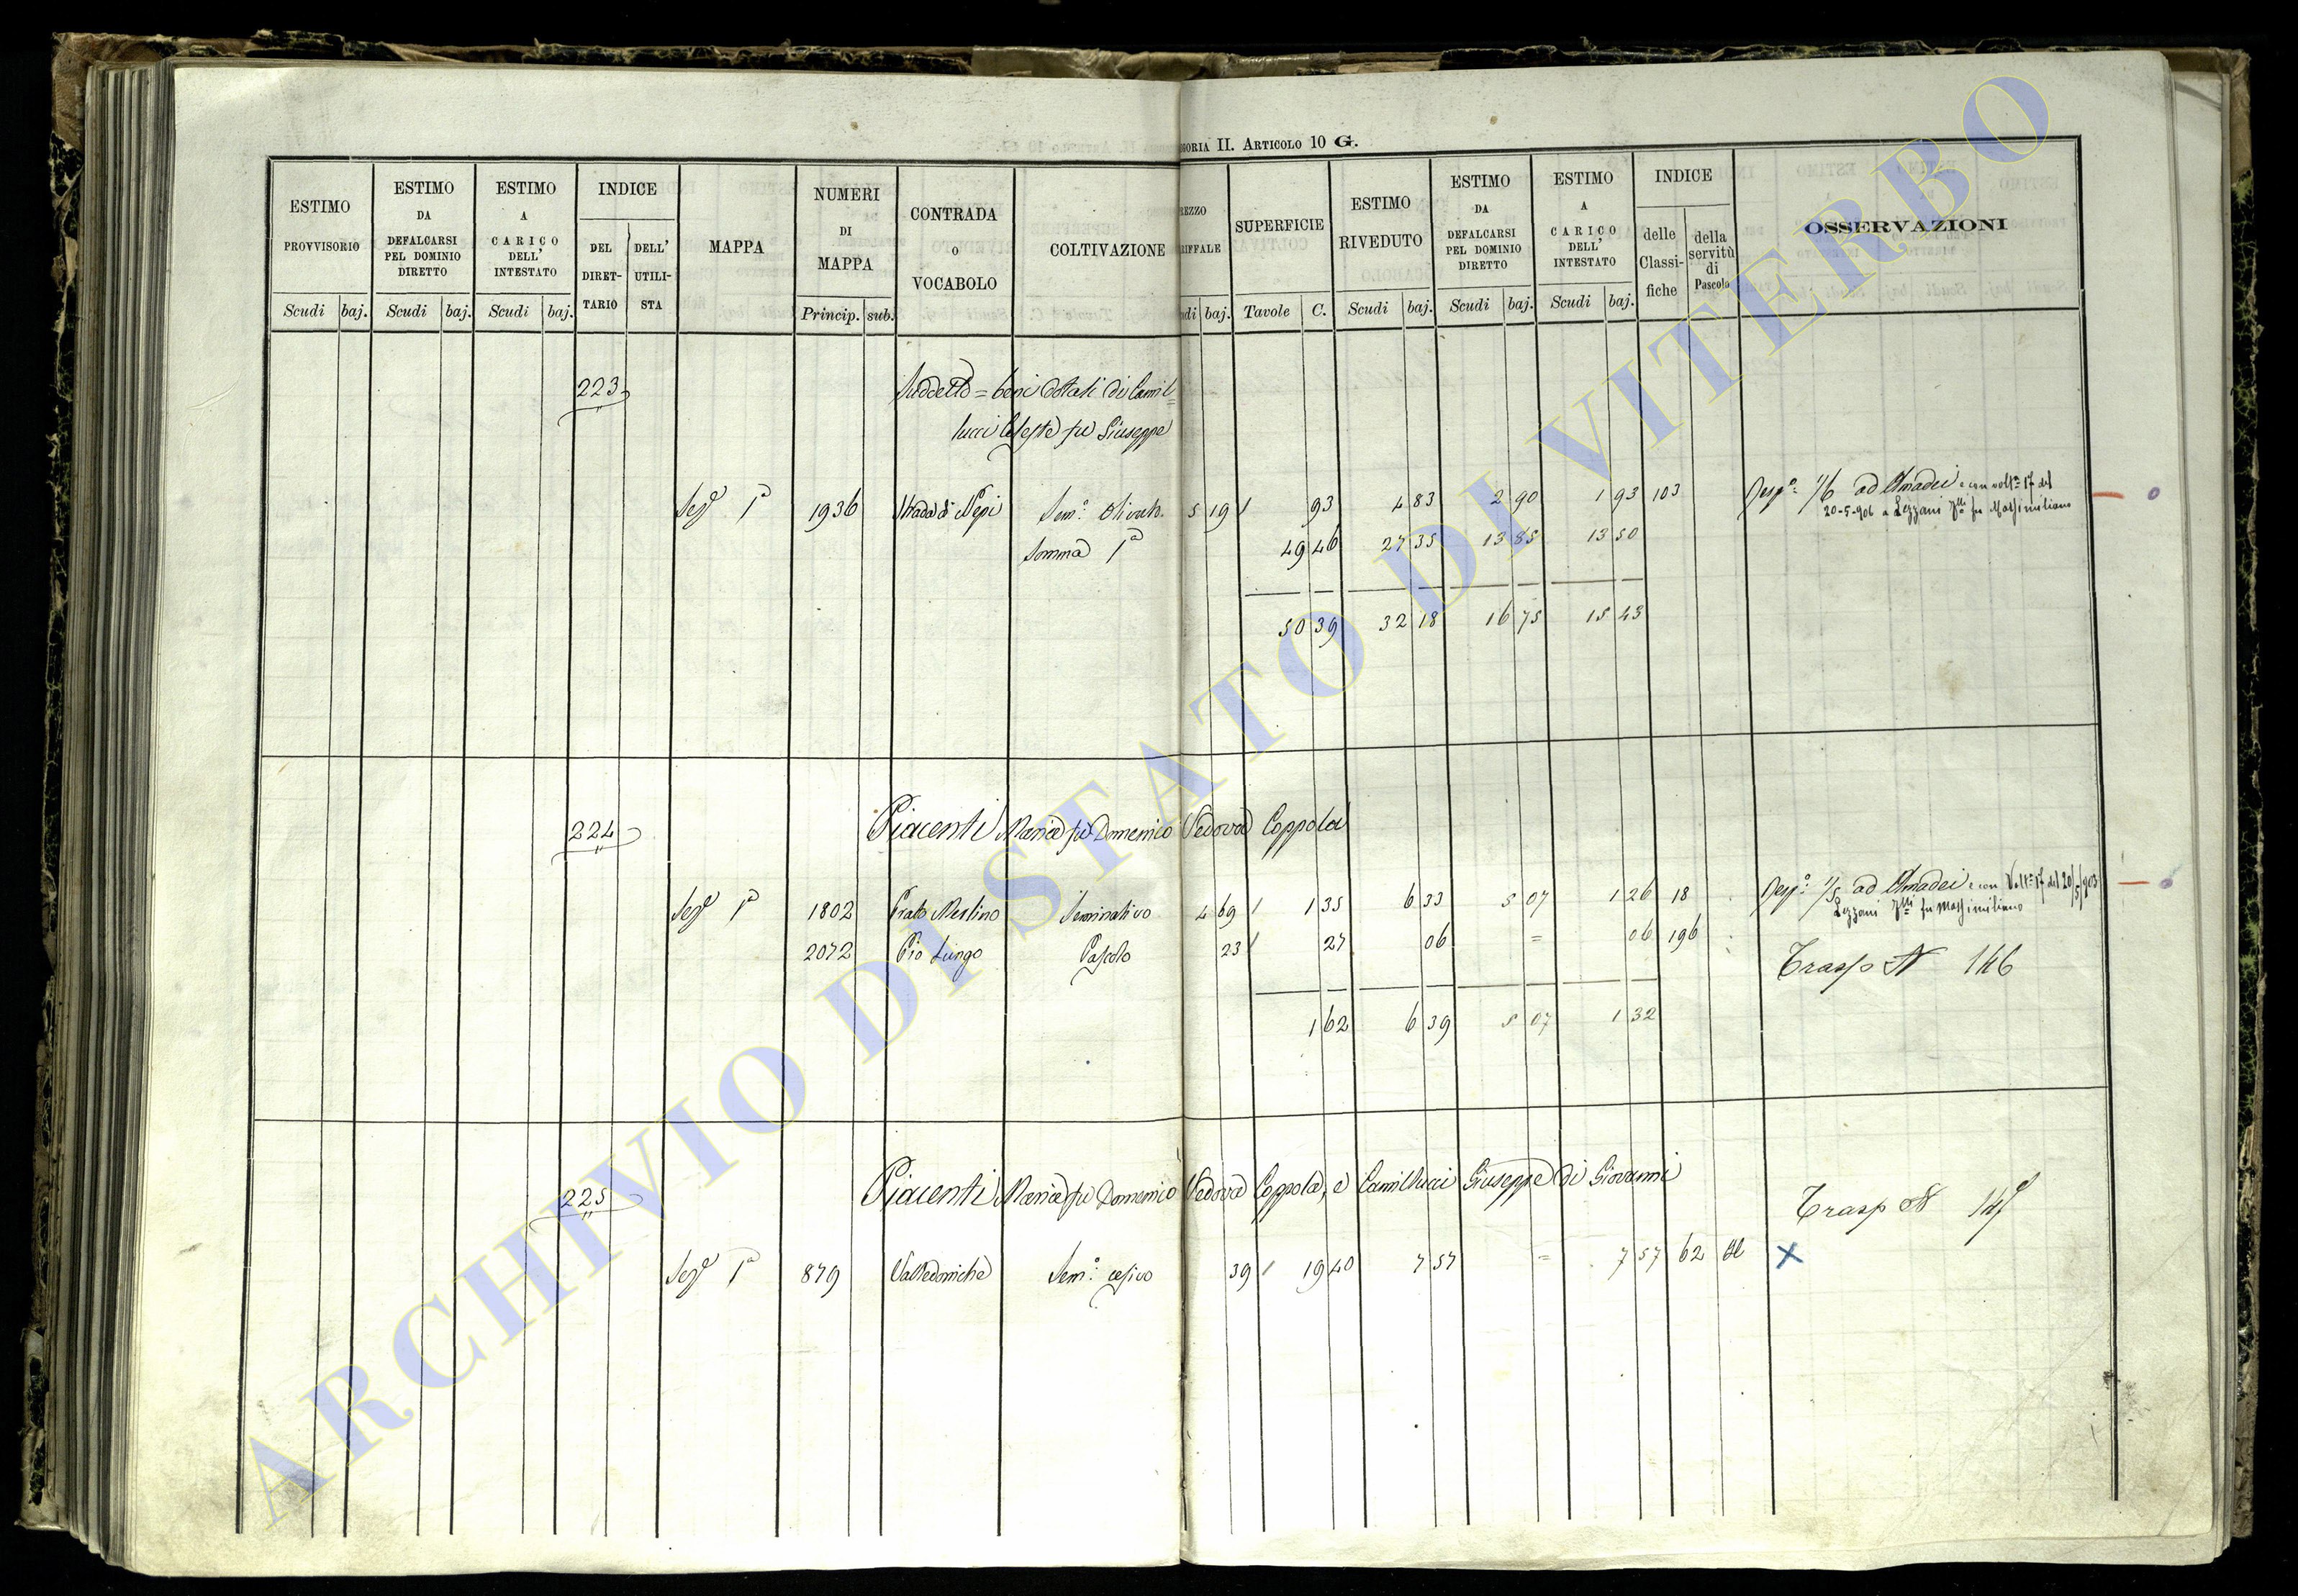 GORIA II. ARTICOLO 10 G.
ESTIMO PROVVISORIO
Scudi baj.
ESTIMO DA DEFALCARSI PEL DOMINIO DIRETTO
Scudi baj.
ESTIMO A CARICO DELL' INTESTATO
Scudi baj.
INDICE
DEL DIRET-TARIO
DELL' UTILI-STA
MAPPA
NUMERI DI MAPPA
Princip. sub.
CONTRADA O VOCABOLO
COLTIVAZIONE
REZZO RIFFALE
di baj.
SUPERFICIE
Tavole C.
ESTIMO RIVEDUTO
Scudi baj.
ESTIMO DA DEFALCARSI PEL DOMINIO DIRETTO
Scudi baj.
ESTIMO A CARICO DELL' INTESTATO
Scudi baj.
INDICE
delle Classi-fiche
della servitù di Pascolo
OSSERVAZIONI
223 Suddetto = beni dotali di Camil=
lucci Celeste fu Giuseppe
Sezе 1a 1936 Strada di Nepi Sem.o Olivato. 5 19 / 93 4 83 2 90 1 93 103 Resp.e 1/6 ad Amadei e con volt.a 17 del
20-5-906 a Lezzani fu Massimiliano
Somma 1a 49 46 27 35 13 85 13 50
50 39 32 18 16 75 15 43
224 Piacenti Maria fu Domenico Vedova Coppola
Seze 1a 1802 Prato Merlino Seminativo 4 69 / 1 35 6 33 5 07 1 26 18 Resp.e 1/5 ad Amadei e con Volt.a 17 del 20/5/903
Lezzani fu Massimiliano
2072 Pio Lungo Pascolo 23 / 27 06 = 06 196 Trasp N 146
1 62 6 39 5 07 1 32
225 Piacenti Maria fu Domenico Vedova Coppola, e Camillucci Giuseppe di Giovanni
Trasp N
Seze 1a 879 Valledmiche Sem.o cesivo 39 / 19 40 7 57 = 7 57 62 X
ARCHIVIO DI STATO DI VITERBO